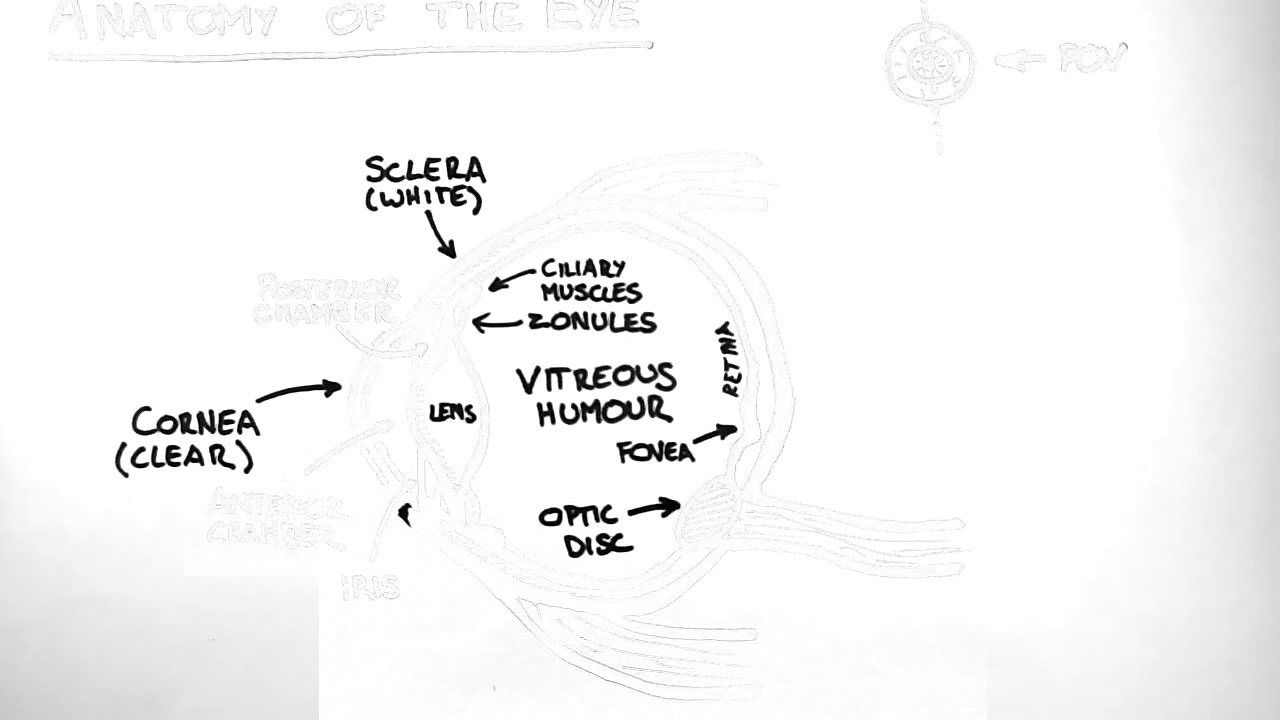 ANATOMY OF THE EYE
POV
SCLERA
(WHITE)
CILIARY
MUSCLES
ZONULES
POSTERIOR
CHAMBER
RETINA
VITREOUS
HUMOUR
LENS
CORNEA
(CLEAR)
FOVEA
ANTERIOR
CHAMBER
OPTIC
DISC
IRIS